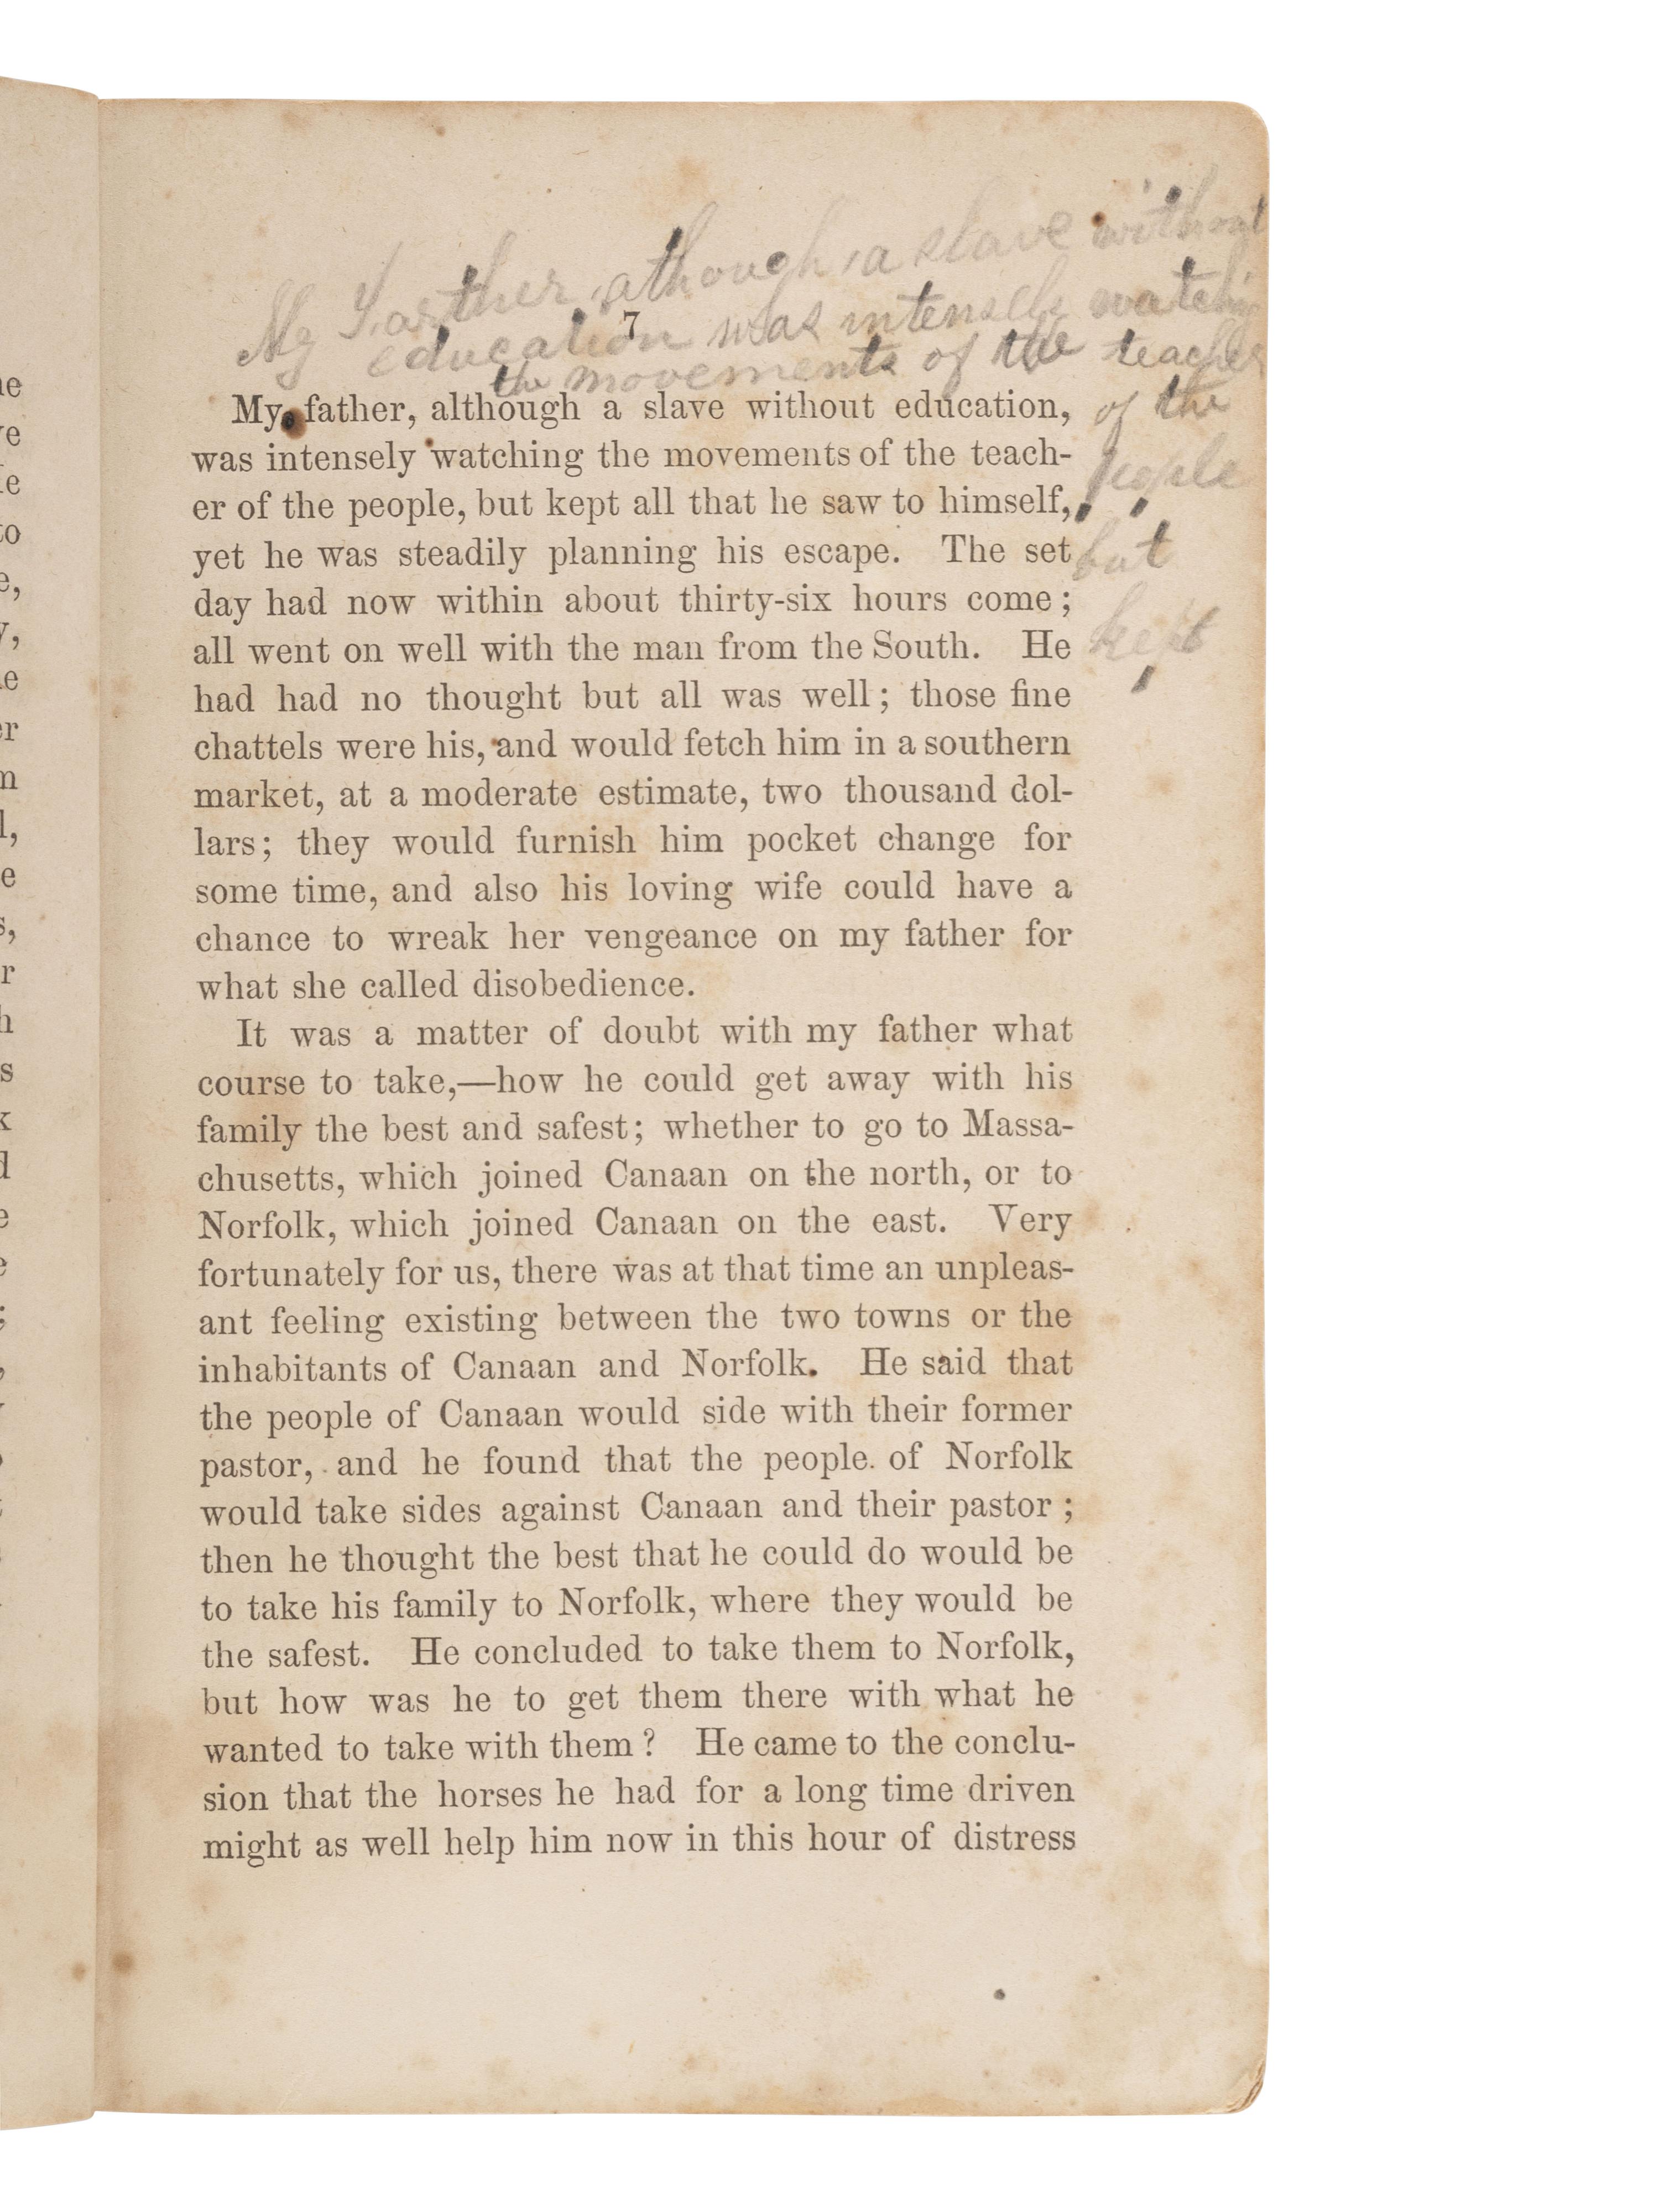 My Farther, athough, a slave without
education was intensely watching
the movements of the teacher
of the
people
but
kept
7
My father, although a slave without education,
was intensely watching the movements of the teach-
er of the people, but kept all that he saw to himself,
yet he was steadily planning his escape. The set
day had now within about thirty-six hours come;
all went on well with the man from the South. He
had had no thought but all was well; those fine
chattels were his, and would fetch him in a southern
market, at a moderate estimate, two thousand dol-
lars; they would furnish him pocket change for
some time, and also his loving wife could have a
chance to wreak her vengeance on my father for
what she called disobedience.
It was a matter of doubt with my father what
course to take,—how he could get away with his
family the best and safest; whether to go to Massa-
chusetts, which joined Canaan on the north, or to
Norfolk, which joined Canaan on the east. Very
fortunately for us, there was at that time an unpleas-
ant feeling existing between the two towns or the
inhabitants of Canaan and Norfolk. He said that
the people of Canaan would side with their former
pastor, and he found that the people of Norfolk
would take sides against Canaan and their pastor;
then he thought the best that he could do would be
to take his family to Norfolk, where they would be
the safest. He concluded to take them to Norfolk,
but how was he to get them there with what he
wanted to take with them? He came to the conclu-
sion that the horses he had for a long time driven
might as well help him now in this hour of distress